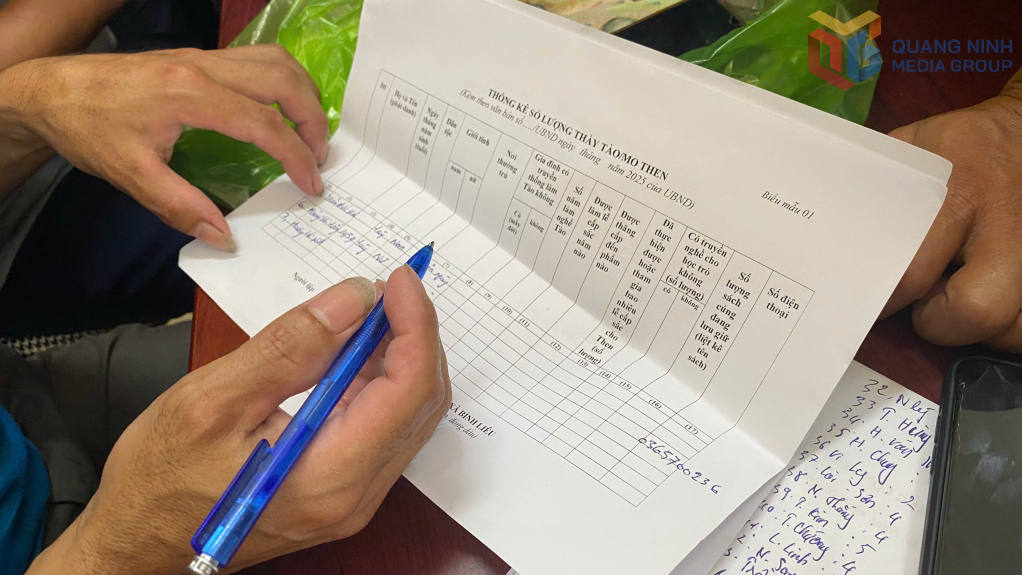 QUANG NINH
MEDIA GROUP
THỐNG KÊ SỐ LƯỢNG THẦY TÀO/MO THEN
(Kèm theo văn bản số..../UBND ngày tháng năm 2025 của UBND)
Biểu mẫu 01
Stt
Họ và Tên
(phải danh)
Ngày
tháng
năm
sinh
(tuổi)
Dân
tộc
Giới tính
nam
nữ
Nơi
thường
trú
Gia đình có
truyền
thống làm
Tào không
Có
(mấy
đời)
không
Số
năm
làm
nghề
Tào
Được
làm lễ
cấp
sắc
năm
nào
Được
thăng
cấp
đến
phẩm
nào
Đã
thực
hiện
được
hoặc
tham
gia
bao
nhiêu
lễ cấp
sắc
cho
Then
(số
lượng)
Có truyền
nghề cho
học trò
không
(số lượng)
có
không
Số
lượng
sách
cúng
đang
lưu giữ
(liệt kê
tên
sách)
Số điện
thoại
(8)
(9)
(10)
(11)
(12)
(13)
(14)
(15)
(16)
(17)
0365760236
Người lập
XÃ BÌNH LIÊU
đóng dấu)
32, Nhị
33 T. Hùng
34 H.
35 H. Chay
36 Vi Ly : 2
37 Lài Sản 4
38 N. Thắng 4
39 P. Kim : 5
40 T. Chương : 4
L. Linh